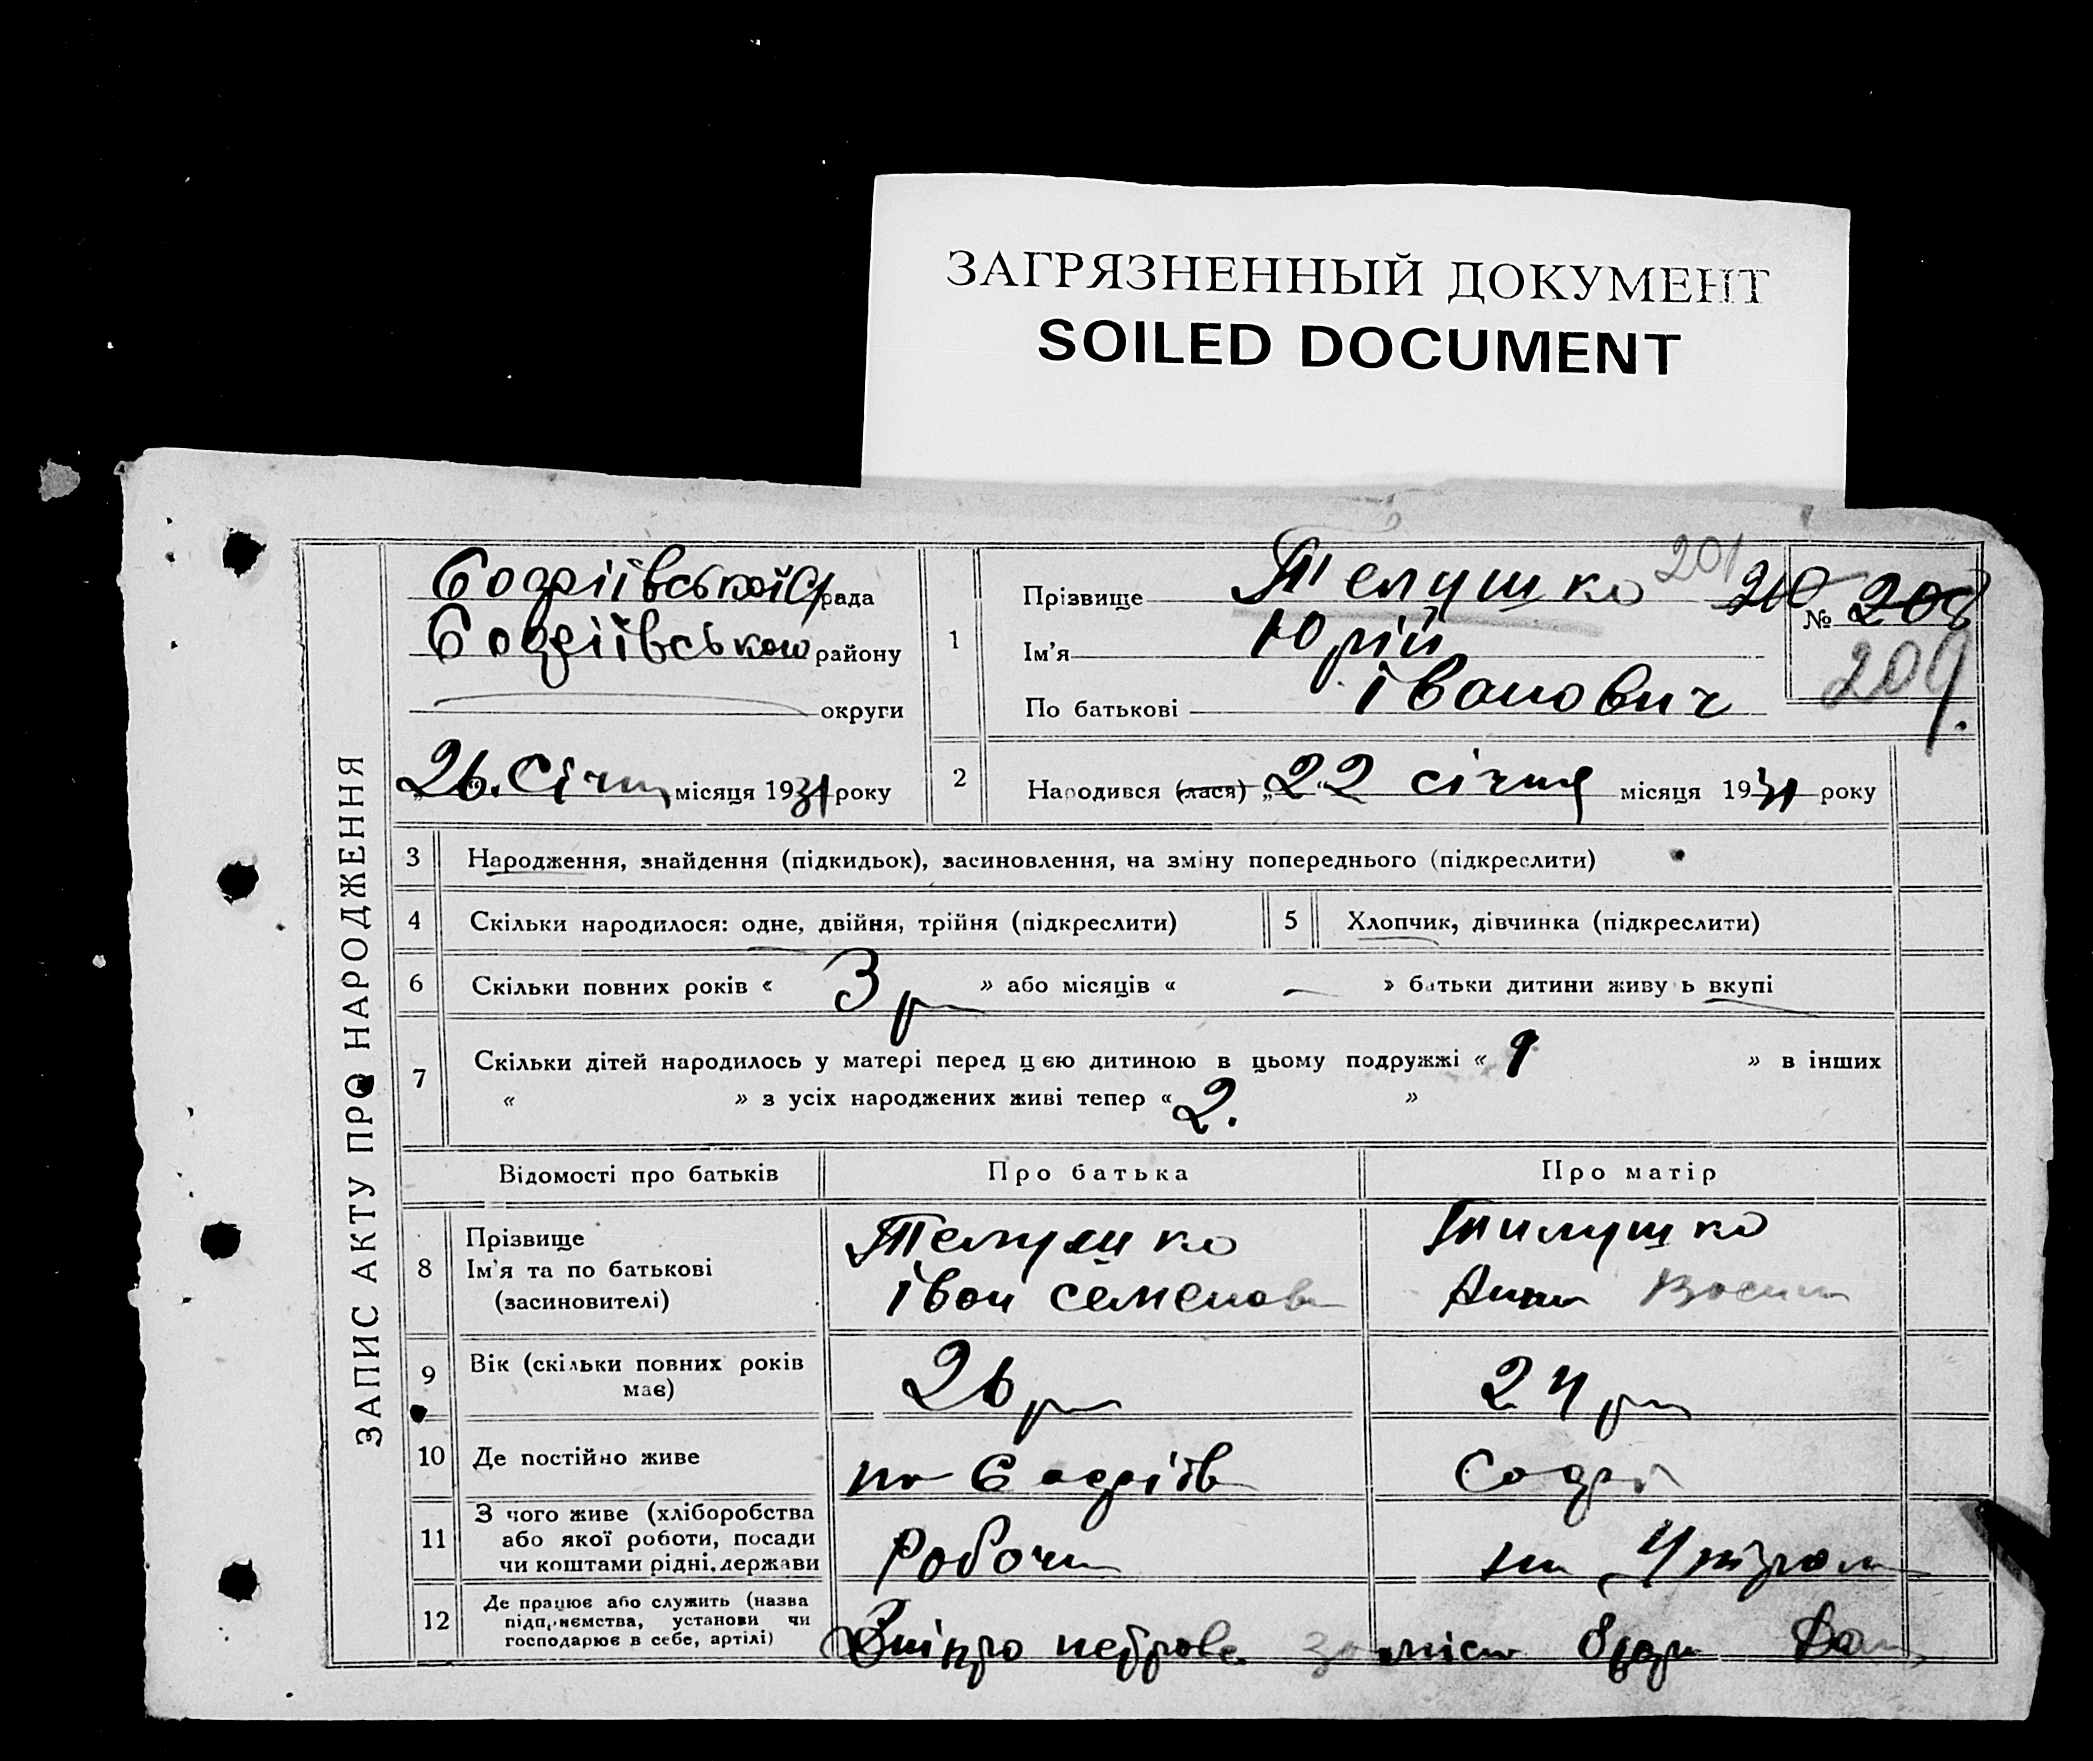 ЗАГРЯЗНЕННЫЙ ДОКУМЕНТ
SOILED DOCUMENT
ЗАПИС АКТУ ПРО НАРОДЖЕННЯ
Софіївської С/рада
Софіївського району
округи
„26“ Січня місяця 1931 року
1
Прізвище Телушко 201 210 № 208
209
Ім'я Юрій
По батькові Іванович
2 Народився (лася) „22“ січня місяця 1931 року
3 Народження, знайдення (підкидьок), засиновлення, на зміну попереднього (підкреслити)
4 Скільки народилося: одне, двійня, трійня (підкреслити) 5 Хлопчик, дівчинка (підкреслити)
6 Скільки повних років « 3 р » або місяців « — » батьки дитини живуть вкупі
7 Скільки дітей народилось у матері перед цією дитиною в цьому подружжі « 1 » в інших
« » з усіх народжених живі тепер « 2. »
Відомості про батьків Про батька Про матір
8 Прізвище Телушко Тилушко
Ім'я та по батькові Іван Семенов Анна
(засиновителі)
9 Вік (скільки повних років має) 26 р 24 р
10 Де постійно живе Софіїв Софі
11 З чого живе (хліборобства або якої роботи, посади чи коштами рідні, держави Робочи на
12 Де працює або служить (назва підприємства, установи чи господарює в себе, артілі) Дніпро петровс